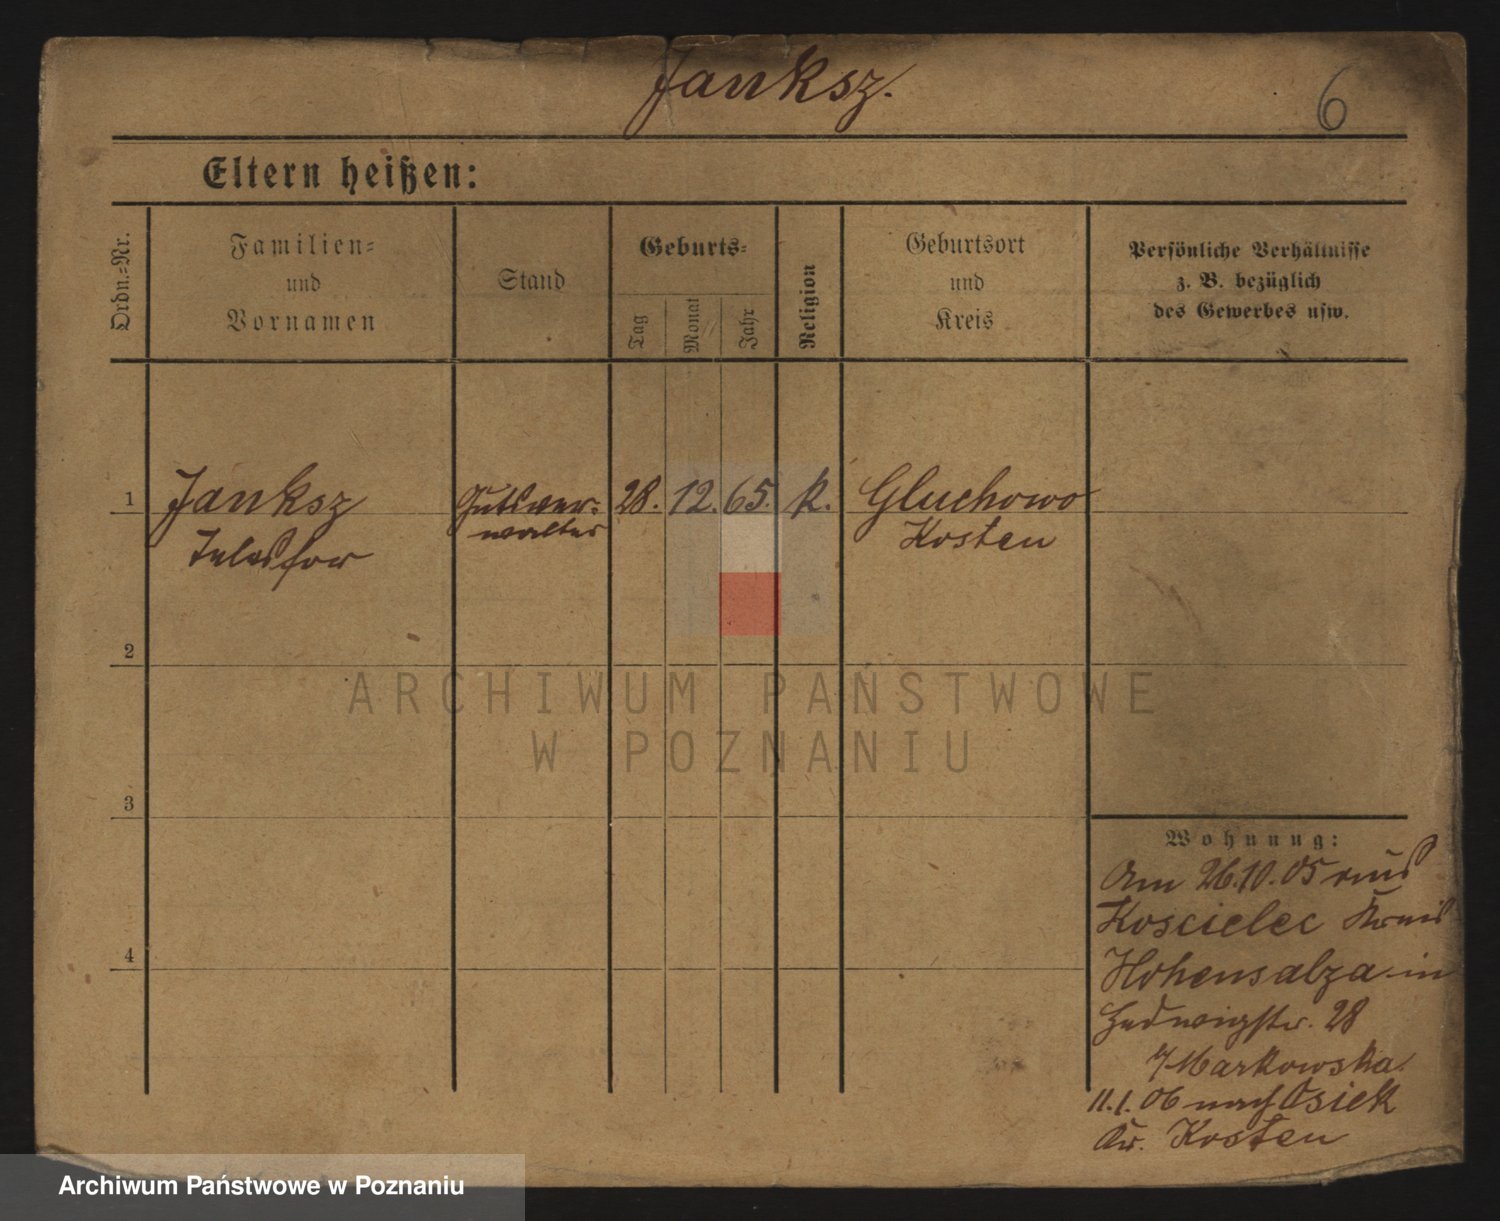 Janksz.
6
Eltern heißen:
Ordn.-Nr.
Familien-
und
Vornamen
Stand
Geburts-
Tag
Monat
Jahr
Religion
Geburtsort
und
Kreis
Persönliche Verhältnisse
z. B. bezüglich
des Gewerbes usw.
1 Janksz Gutsver- 28. 12. 65. k. Gluchowo
Telesfor walter Kosten
2
ARCHIWUM PAŃSTWOWE
W POZNANIU
3
Wohnung:
Am 26.10.05 aus
Koscielec Kreis
4
Hohensalza in
Hedwigstr. 28
b/ Markowska
11.1.06 nach Osiek
Kr. Kosten
Archiwum Państwowe w Poznaniu